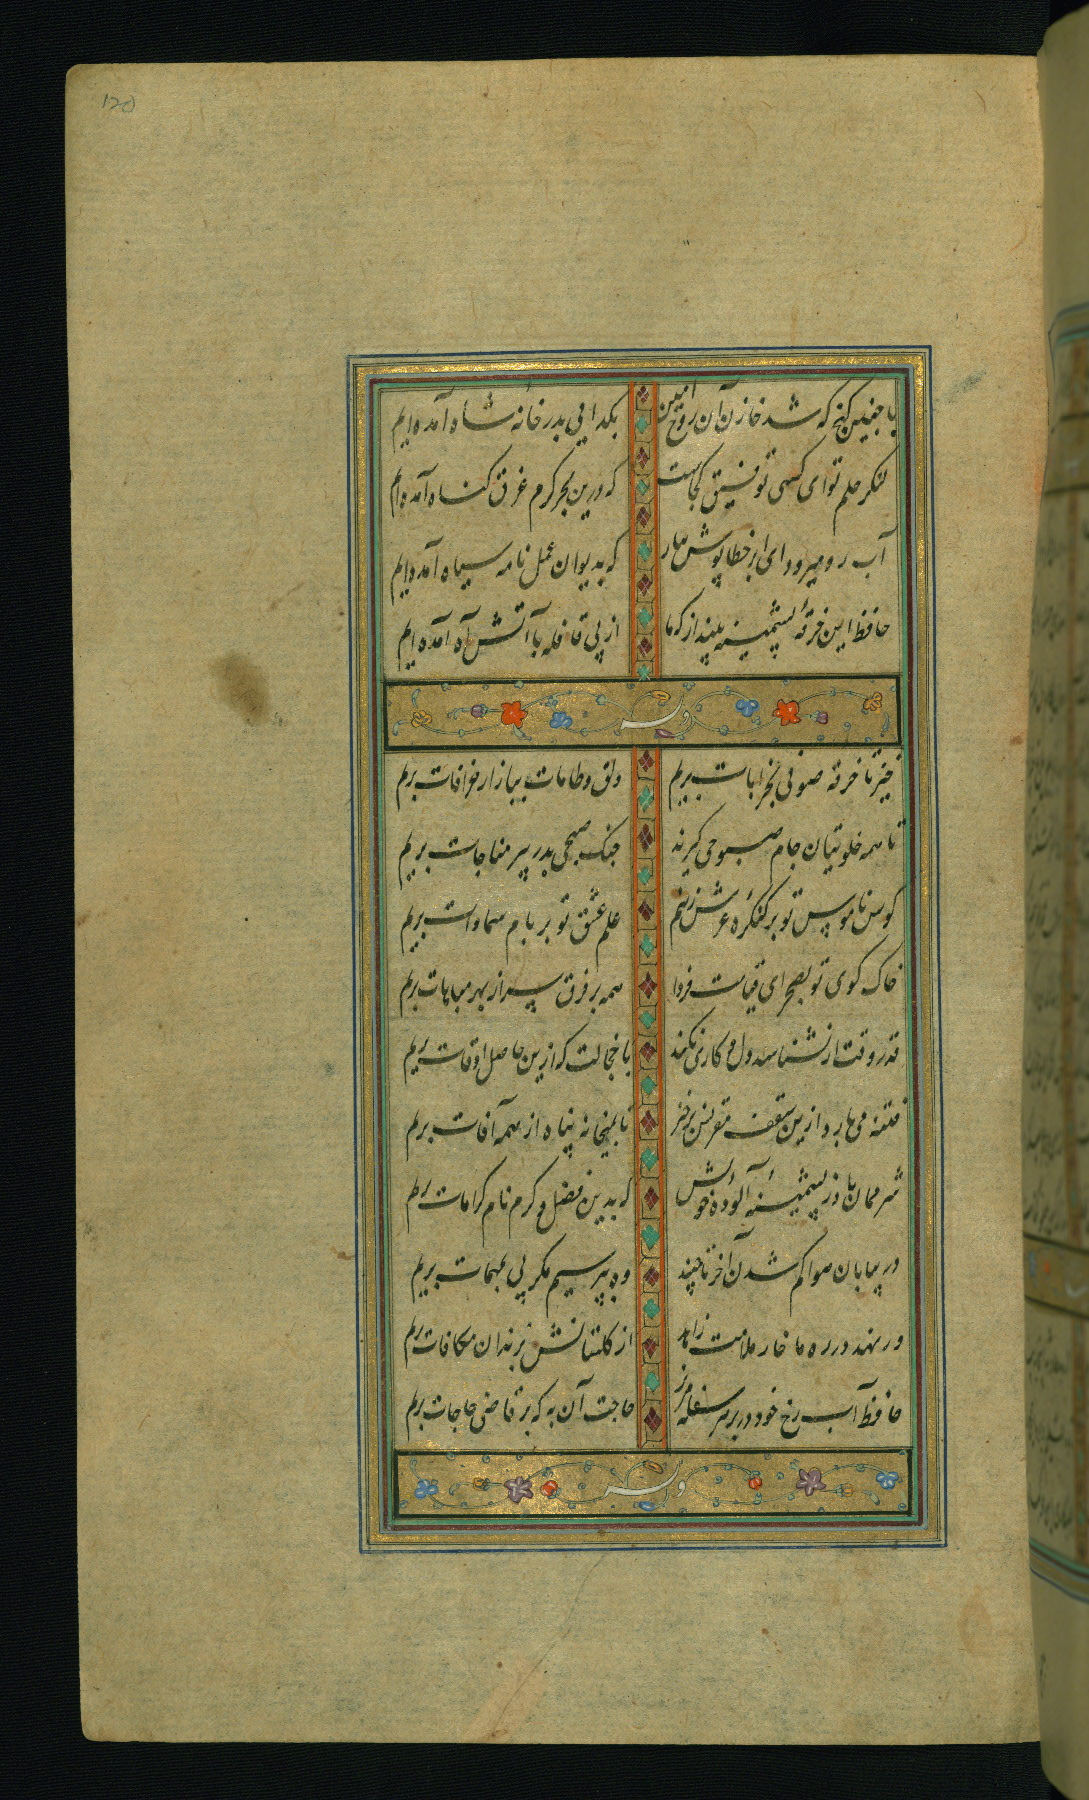 120
با چنین کنج که شد خازن آن روح امین
بکدایی بدر خانه شاه آمده ایم
لنکر حلم تو ای کشتی توفیق کجاست
که درین بحر کرم غرق کناه آمده ایم
آب رو میرود ای ابر خطاپوش ببار
که بدیوان عمل نامه سیاه آمده ایم
حافظ این خرقهٔ پشمینه بینداز که ما
از پی قافله با آتش آه آمده ایم
وله
خیز تا خرقه صوفی بخرابات بریم
دلق و طامات ببازار خرافات بریم
تا همه خلوتیان جام صبوحی کیرند
چنک صبحی بدر پیر مناجات بریم
کوس ناموس تو بر کنکرهٔ عرش زنیم
علم عشق تو بر بام سماوات بریم
خاک کوی تو بصحرای قیامت فردا
همه بر فرق سر از بهر مباهات بریم
قدر وقت ار نشناسد دل و کاری نکند
با خجالت که ازین حاصل اوقات بریم
فتنه می بارد ازین سقف مقرنس برخیز
تا بمیخانه پناه از همه آفات بریم
شرممان باد ز پشمینهٔ آلودهٔ خویش
که بدین فضل و کرم نام کرامات بریم
در بیابان هوا کم شدن آخر تا چند
ره بپرسیم مکر پی بمهمات بریم
ور نهد در ره ما خار ملامت زاهد
از کلستانش بزندان مکافات بریم
حافظ آب رخ خود بر در هر سفله مریز
حاجت آن به که بر قاضی حاجات بریم